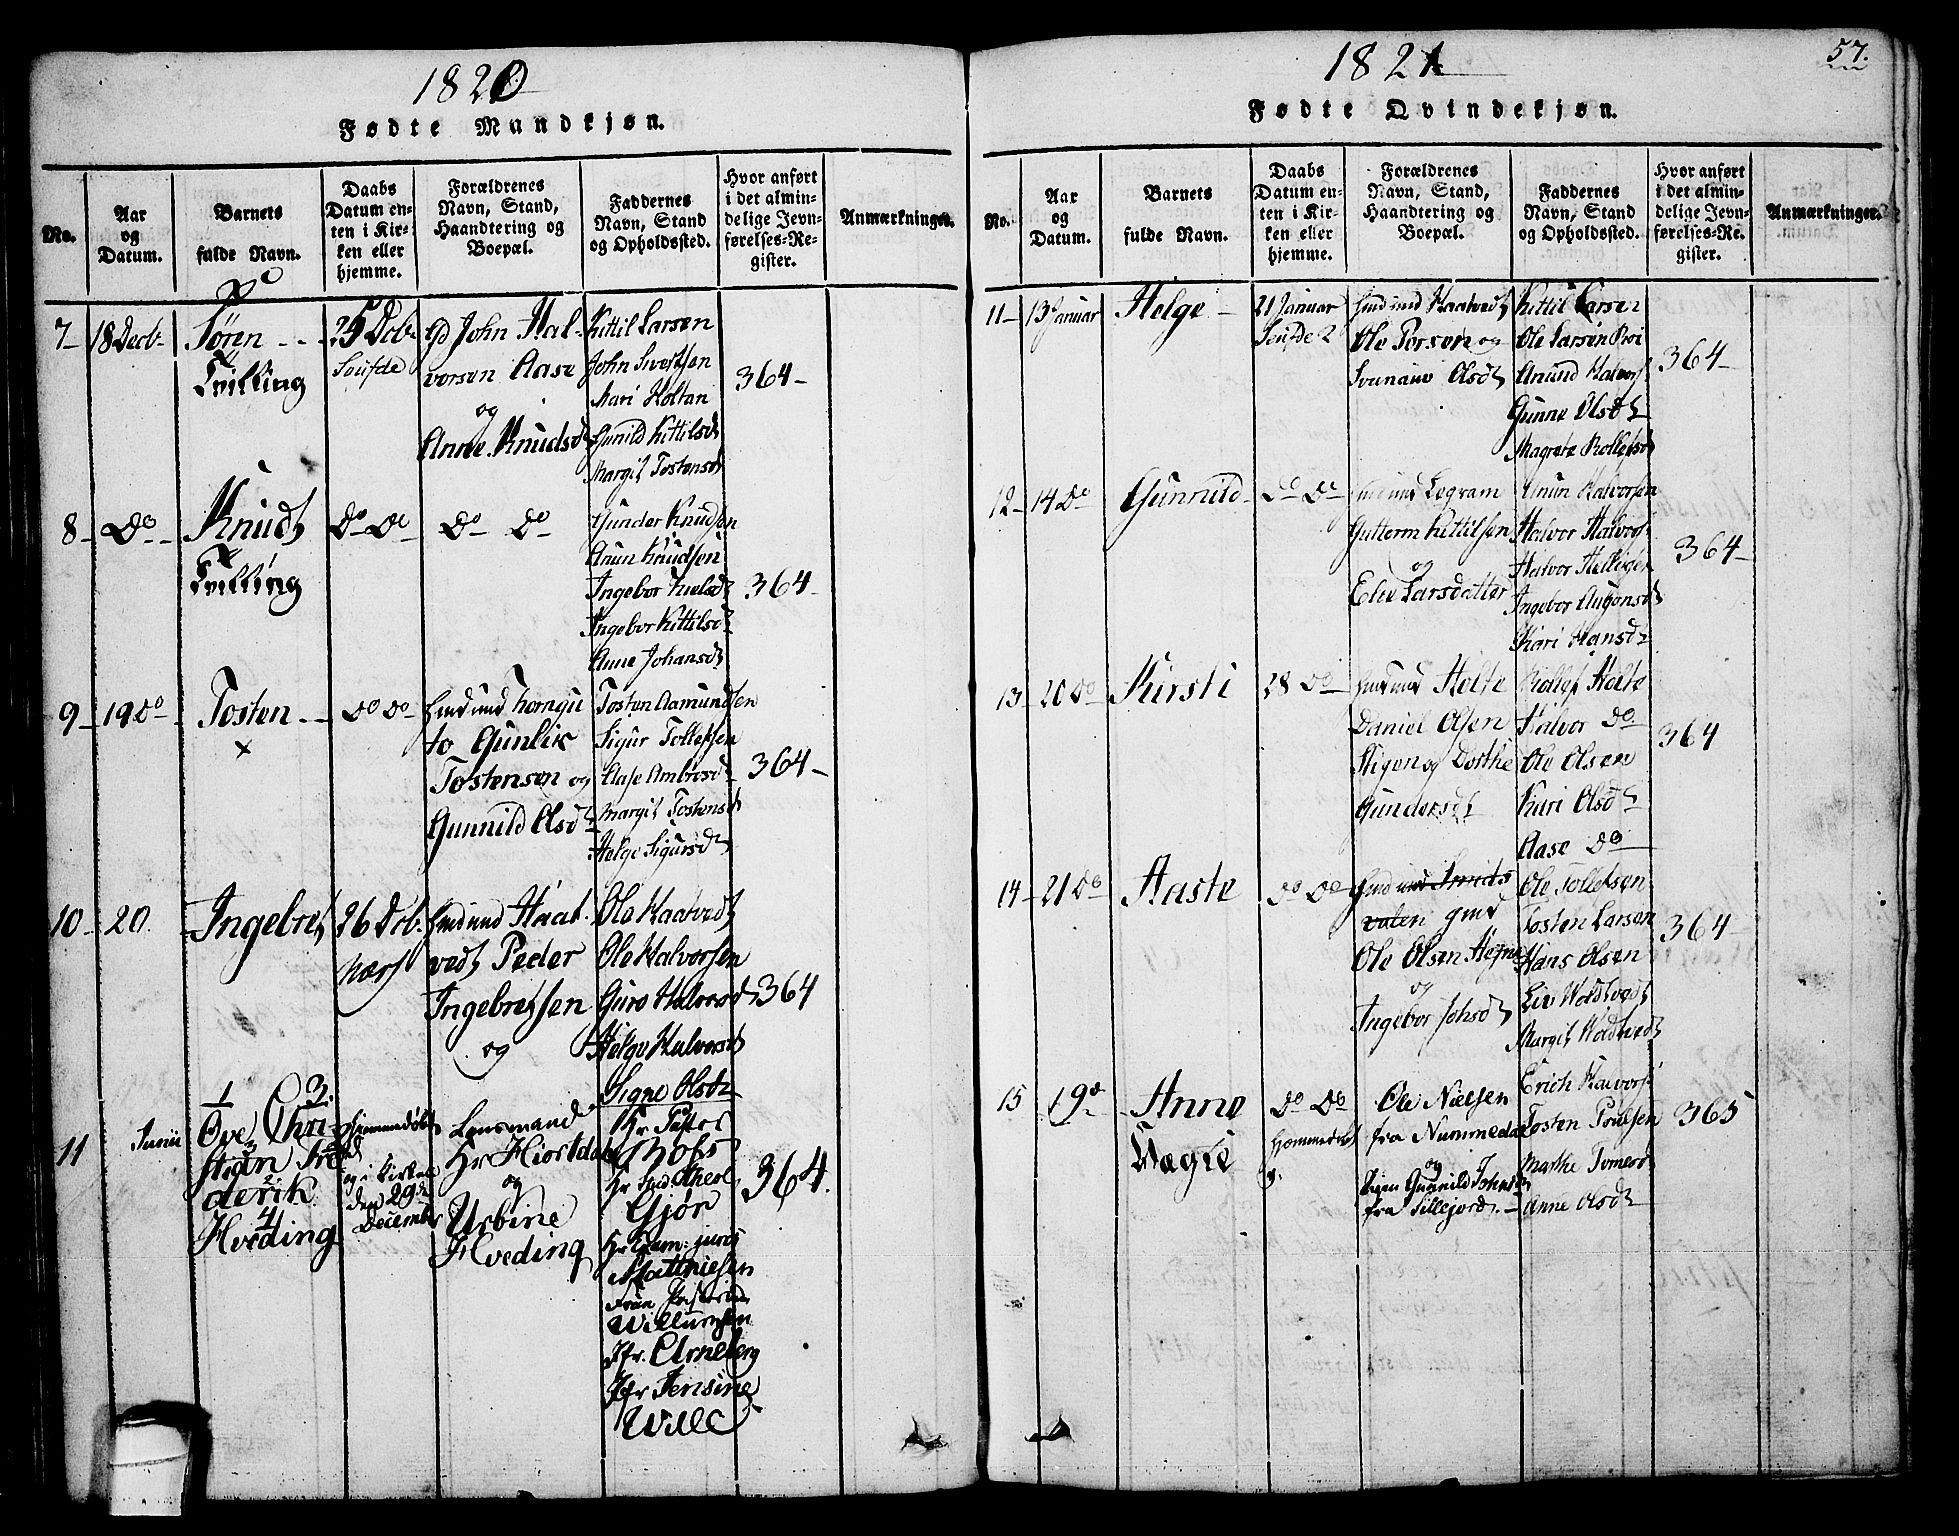 1820
Fødte Mandkjøn.
No.
Aar og Datum.
Barnets fulde Navn.
Daabs Datum enten i Kirken eller hjemme.
Forældrenes Navn, Stand, Haandtering og Boepæl.
Faddernes Navn, Stand og Opholdssted.
Hvor anført i det almindelige Jevnførelses-Register.
Anmærkninger.
7
18 Decb-
Søren
Tvilling
25 Dcb-
Soufde
Gd John Hal-
vorsen Aase
og
Anne Knudsd
Kittil Larsen
John Sivertsen
Mari Holtan
Gunild Kittilsd
Margit Tostensd
364
8
Do
Knud
Tvilling
Do Do
Do Do
Gunder Knudsen
Anun Knudsen
Ingebor Nielsd
Ingebor Kittilsd
Anne Johansd
364
9
19 Do
Tosten
x
Do Do
to Gunlik
Tostensen og
Gunnild Olsd
Tosten Aamundsen
Sigur Tollefsen
Aase Ambrosd
Margit Tostensd
Helge Sigursd
364
10
20
Ingebret
26 Dcb.
Næs
Haat-
vedt Peder
Ingebretsen
og
Ole Haatvedt
Ole Halvorsen
Guro Halvorsd
Helge Halvorsd
Signe Olsd
364
11
Junii
1 3.
Ove Chri
stian Fre
2
derik
4
Hveding
Hjemmedøbt
og i Kirken
den 29de
December
Lensmand
Hr Hiortdal
og
Urbine
Hveding
Hr Pastor
Hr
Gjør
Hr Exam: juris
Matthiesen
Frue
Willumsen
Jfr. Arneberg
Jfr Jensine
Wille
364.
1821
57.
Fødte Qvindekjøn.
No.
Aar og Datum.
Barnets fulde Navn.
Daabs Datum enten i Kirken eller hjemme.
Forældrenes Navn, Stand, Haandtering og Boepæl.
Faddernes Navn, Stand og Opholdssted.
Hvor anført i det almindelige Jevnførelses-Register.
Anmærkninger.
11
13 Januar
Helge
21 Januar
Soufde
Haatvedt
Ole Persen og
Olsd
Kittil Larsen
Ole Larsen
Anund Halvors
Gunne Olsd
Magrete Rollefsd
364
12
14 Do
Gunnild
Do Do
Legram
Guttorm Kittilsen
og
Elie Larsdatter
Anun Halvorsen
Halvor Halvors
Halvor Helliesen
Ingebor
Kari Hansd
364
13
20 Do
Kirsti
28 Do
Holte
Daniel Olsen
Stigen og Dorthe
Gundersd
Rollef Holte
Halvor Do
Ole Olsen
Kari Olsd
Aase Do
364
14
21 Do
Aaste
Do Do
Ole Olsen Hegna
og
Ingebor Johsd
Ole Tollefsen
Tosten Larsen
Hans Olsen
Liv Woldsvedt
Margit Woldsvedt
364
15
19 d
Anne
Vægie
Do Do
Hjemmedøbt
Ole Nielsen
fra Nummedal
og
Pigen Gunnild Johnsd
fra Sillejord.
Erich Halvors
Tosten Poulsen
Marthe
Anne Olsd
365